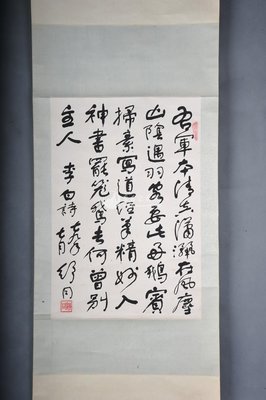 右軍本清真瀟灑在風塵
山陰遇羽客要此好鵝賓
掃素寫道經筆精妙入
神書罷籠鵞去何曾別
主人 李白詩
七月 舒同